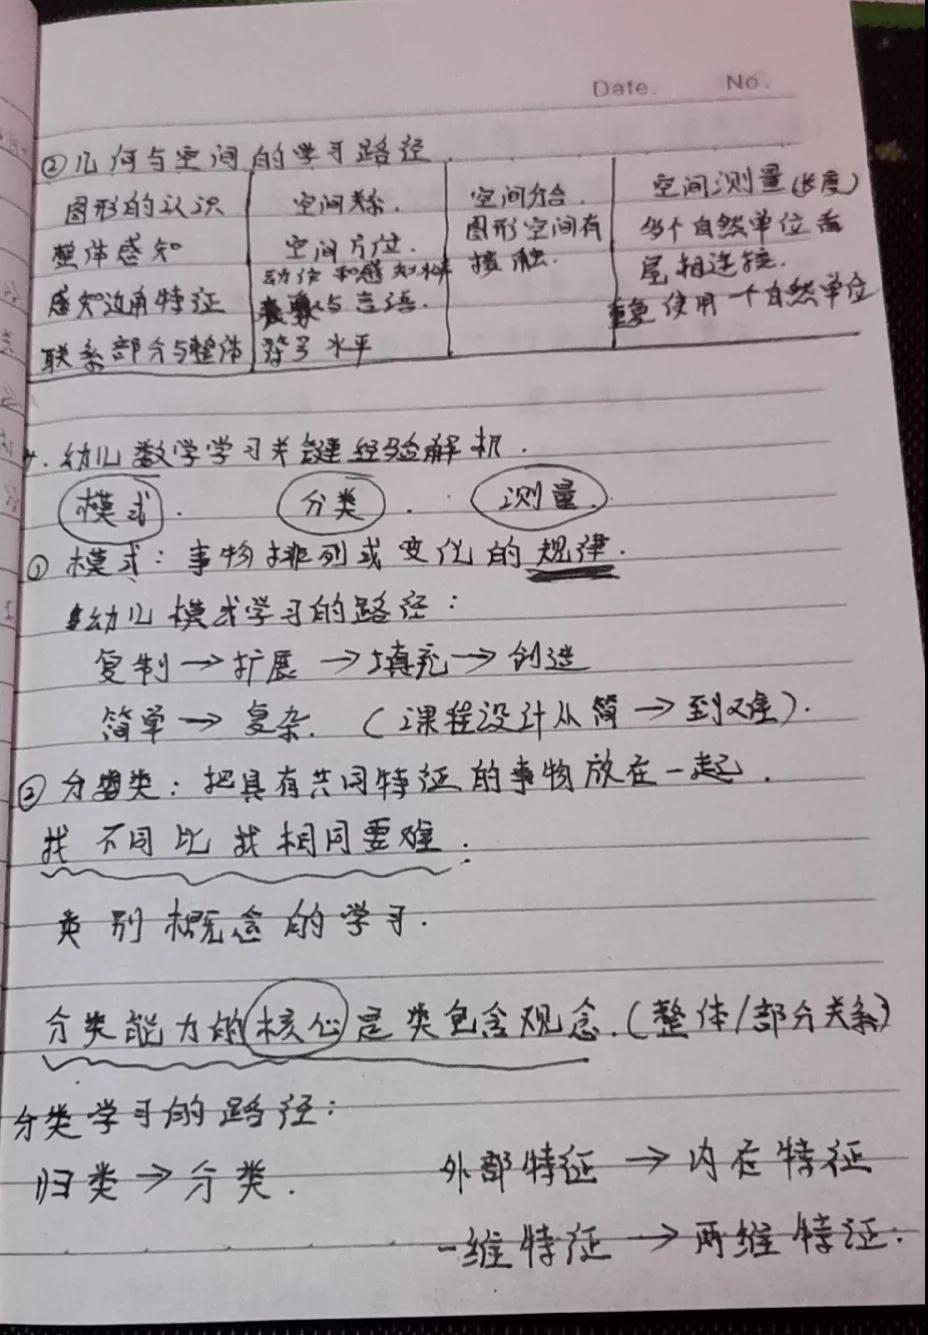 Date. No.
②几何与空间的学习路径
图形的认识 空间关系. 空间分合. 空间测量(长度)
整体感知 空间方位. 图形空间有 多个自然单位首
感知边角特征 动作和感知水平 接触. 尾相连接.
与言语. 重复使用一个自然单位
联系部分与整体 符号水平
幼儿数学学习关键经验解析.
模式. 分类. 测量.
① 模式: 事物排列或变化的规律.
幼儿模式学习的路径:
复制→扩展→填充→创造
简单→复杂. (课程设计从简→到难).
② 分类: 把具有共同特征的事物放在一起.
找不同比找相同要难.
类别概念的学习.
分类能力的核心是类包含观念.(整体/部分关系)
分类学习的路径:
归类→分类. 外部特征→内在特征
一维特征→两维特征.